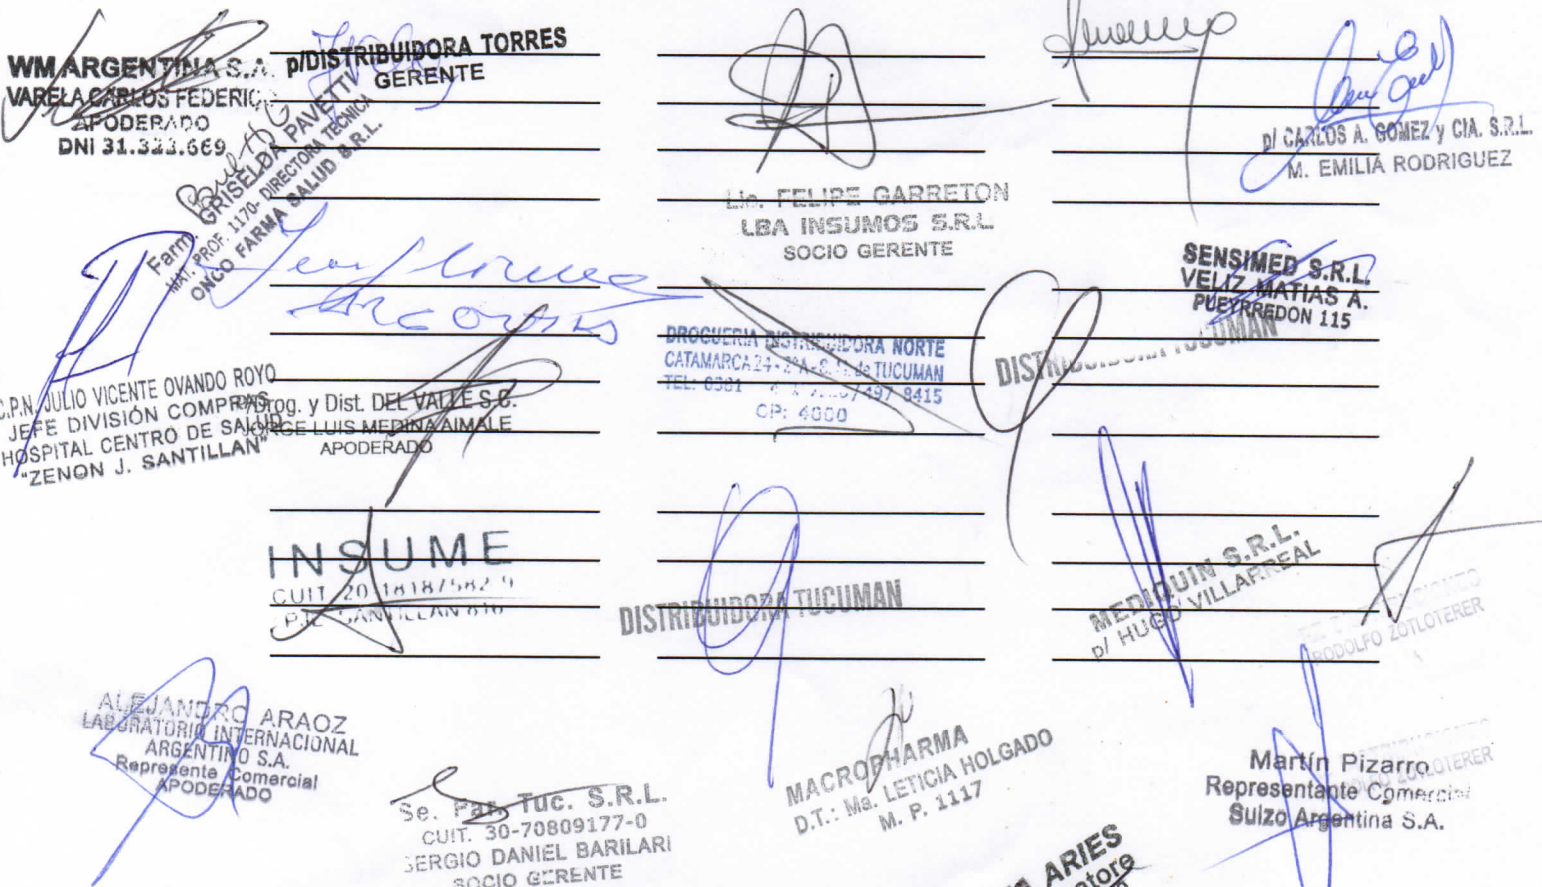 WM ARGENTINA S.A.
VARELA CARLOS FEDERICO
APODERADO
DNI 31.323.669
p/DISTRIBUIDORA TORRES
GERENTE
Farm. GRISELDA PAVETTI
MAT. PROF. 1170- DIRECTORA TECNICA
ONCO FARMA SALUD S.R.L.
Lic. FELIPE GARRETON
LBA INSUMOS S.R.L.
SOCIO GERENTE
p/ CARLOS A. GOMEZ y CIA. S.R.L.
M. EMILIA RODRIGUEZ
SENSIMED S.R.L.
VELIZ MATIAS A.
PUEYRREDON 115
DROGUERIA DISTRIBUIDORA NORTE
CATAMARCA 24 - 2ºA - S.M. de TUCUMAN
TEL: 0381 497 8415
CP: 4000
DISTRIBUIDORA TUCUMAN
C.P.N. JULIO VICENTE OVANDO ROYO
JEFE DIVISIÓN COMPRAS
HOSPITAL CENTRO DE SALUD
"ZENON J. SANTILLAN"
P/Drog. y Dist. DEL VALLE S.C.
JORGE LUIS MEDINA AIMALE
APODERADO
INSUME
CUIT 20 18187582 9
SANTILLAN 616
DISTRIBUIDORA TUCUMAN
MEDIQUIN S.R.L.
p/ HUGO VILLARREAL
RODOLFO ZOTLOTERER
ALEJANDRO ARAOZ
LABORATORIO INTERNACIONAL
ARGENTINO S.A.
Representa Comercial
APODERADO
Se. Par. Tuc. S.R.L.
CUIT. 30-70809177-0
SERGIO DANIEL BARILARI
SOCIO GERENTE
MACROPHARMA
D.T.: Ma. LETICIA HOLGADO
M. P. 1117
Martín Pizarro
Representante Comercial
Suizo Argentina S.A.
ZOTLOTERER
ARIES